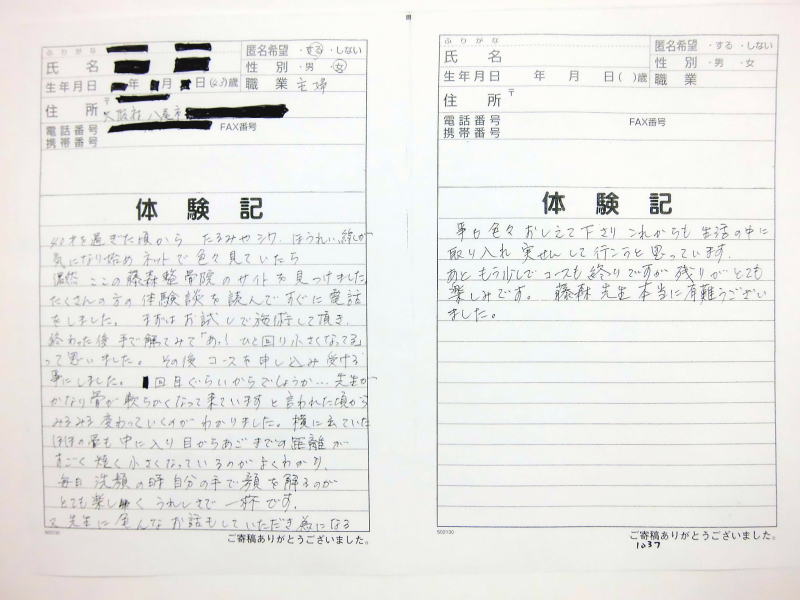 ふりがな
氏 名
匿名希望 ・する ・しない
性 別 ・男 ・女
生年月日 年 月 日( )歳
職 業 主婦
住 所 〒
大阪府八尾市
電話番号
携帯番号
FAX番号
体 験 記
40才を過ぎた頃から たるみやシワ、ほうれい線が
気になり始め ネットで色々見ていたら
偶然 ここの藤森整骨院のサイトを見つけました。
たくさんの方の体験談を読んですぐに電話
をしました。 まずはお試しで施術して頂き、
終わった後 手で触てみて「あっ!ひと回り小さくなってる」
って思いました。 その後 コースを申し込み 受ける
事にしました。 回目ぐらいからでしょうか… 先生が
かなり骨が軟らかくなって来ています と言われた頃から
みるみる変わっていくのが わかりました。横に出ていた
ほほの骨も 中に入り 目からあごまでの距離が
すごく短く 小さくなっているのがよくわかり、
毎日 洗顔の時 自分の手で顔を触るのが
とても楽しく うれしさで 一杯です。
又 先生に色んなお話もしていただき 為になる
502130
ご寄稿ありがとうございました。
ふりがな
氏 名
匿名希望 ・する ・しない
性 別 ・男 ・女
生年月日 年 月 日( )歳
職 業
住 所 〒
電話番号
携帯番号
FAX番号
体 験 記
事も色々おしえて下さり これからも 生活の中に
取り入れ 実せんして行こうと思っています。
あと もう少しでコースも終りですが 残りがとても
楽しみです。 藤森先生 本当に有難うござい
ました。
502130
ご寄稿ありがとうございました。
1037